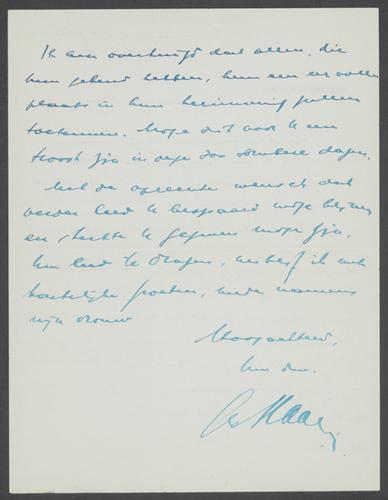 Ik ben overtuigd dat allen, die
hem gekend hebben, hem een eervolle
plaats in hun herinnering zullen
toekennen. Moge dit voor U een
troost zijn in deze zoo sombere dagen.
Met de oprechte wensch dat
verder leed U bespaard moge blijven
en sterkte U gegeven moge zijn,
Uw leed te dragen, verblijf ik met
hartelijke groeten, mede namens
mijn vrouw
Hoogachtend,
Uw dw.